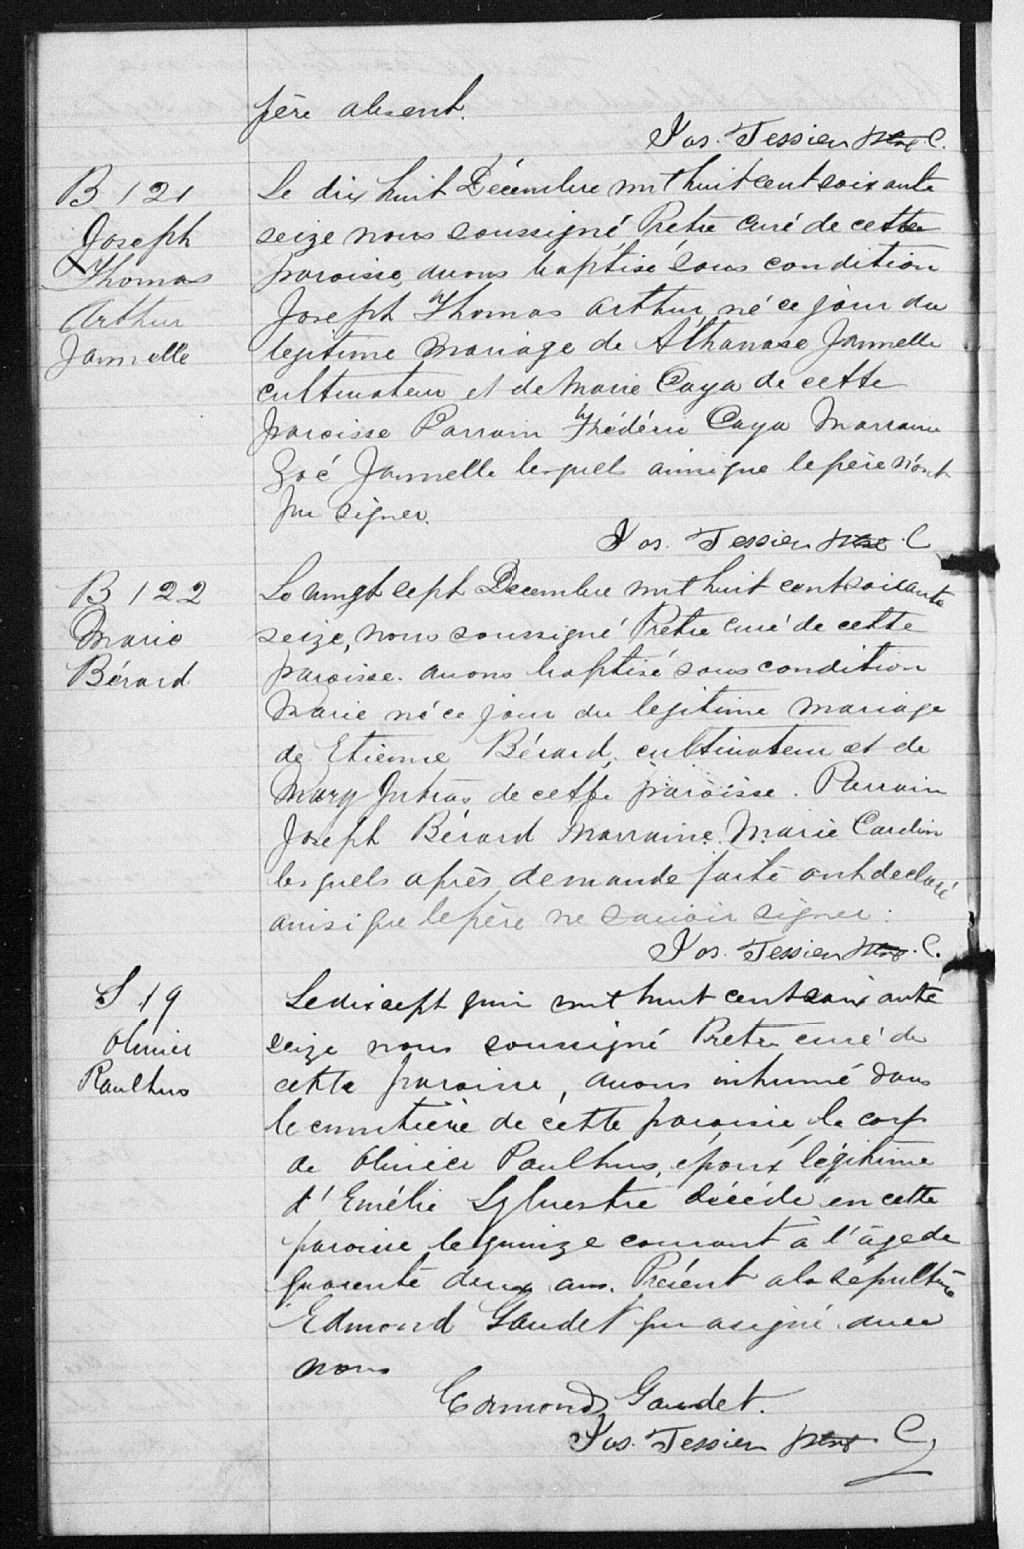 père absent.
Jos. Tessien ptre C.
B 121
Joseph
Thomas
Arthur
Jannelle
Le dix huit Décembre mil huit cent soixante
seize nous soussigné Prêtre curé de cette
paroisse, avons baptisé sous condition
Joseph Thomas Arthur, né ce jour du
legitime mariage de Athanase Jannelle
cultivateur et de Marie Caya de cette
paroisse Parrain Frédéric Caya Marraine
Zoé Jannelle lesquels ainsi que le père n'ont
pu signer.
Jos. Tessien ptre C
B 122
Marie
Bérard
Le vingt sept Decembre mil huit cent soixante
seize, nous soussigné Prêtre curé de cette
paroisse. avons baptisé sous condition
Marie né ce jour du legitime mariage
de Etienne Bérard, cultivateur et de
Mary Jutras de cette paroisse. Parrain
Joseph Bérard Marraine Marie Cardin
lesquels après demande faite ont declaré
ainsi que le père ne savoir signer.
Jos. Tessien ptre C.
S 19
Olivier
Paulhus
Le dix sept juin mil huit cent soixante
seize nous soussigné Pretre curé de
cette paroisse, avons inhumé dans
le cimetière de cette paroisse, le corps
de Olivier Paulhus, époux légitime
d'Emélie Sylvestre décédé en cette
paroisse le quinze courant à l'âge de
quarente deux ans. Présent a la sépulture
Edmond Gaudet qui a signé avec
nous
Edmond Gaudet.
Jos. Tessien ptre C